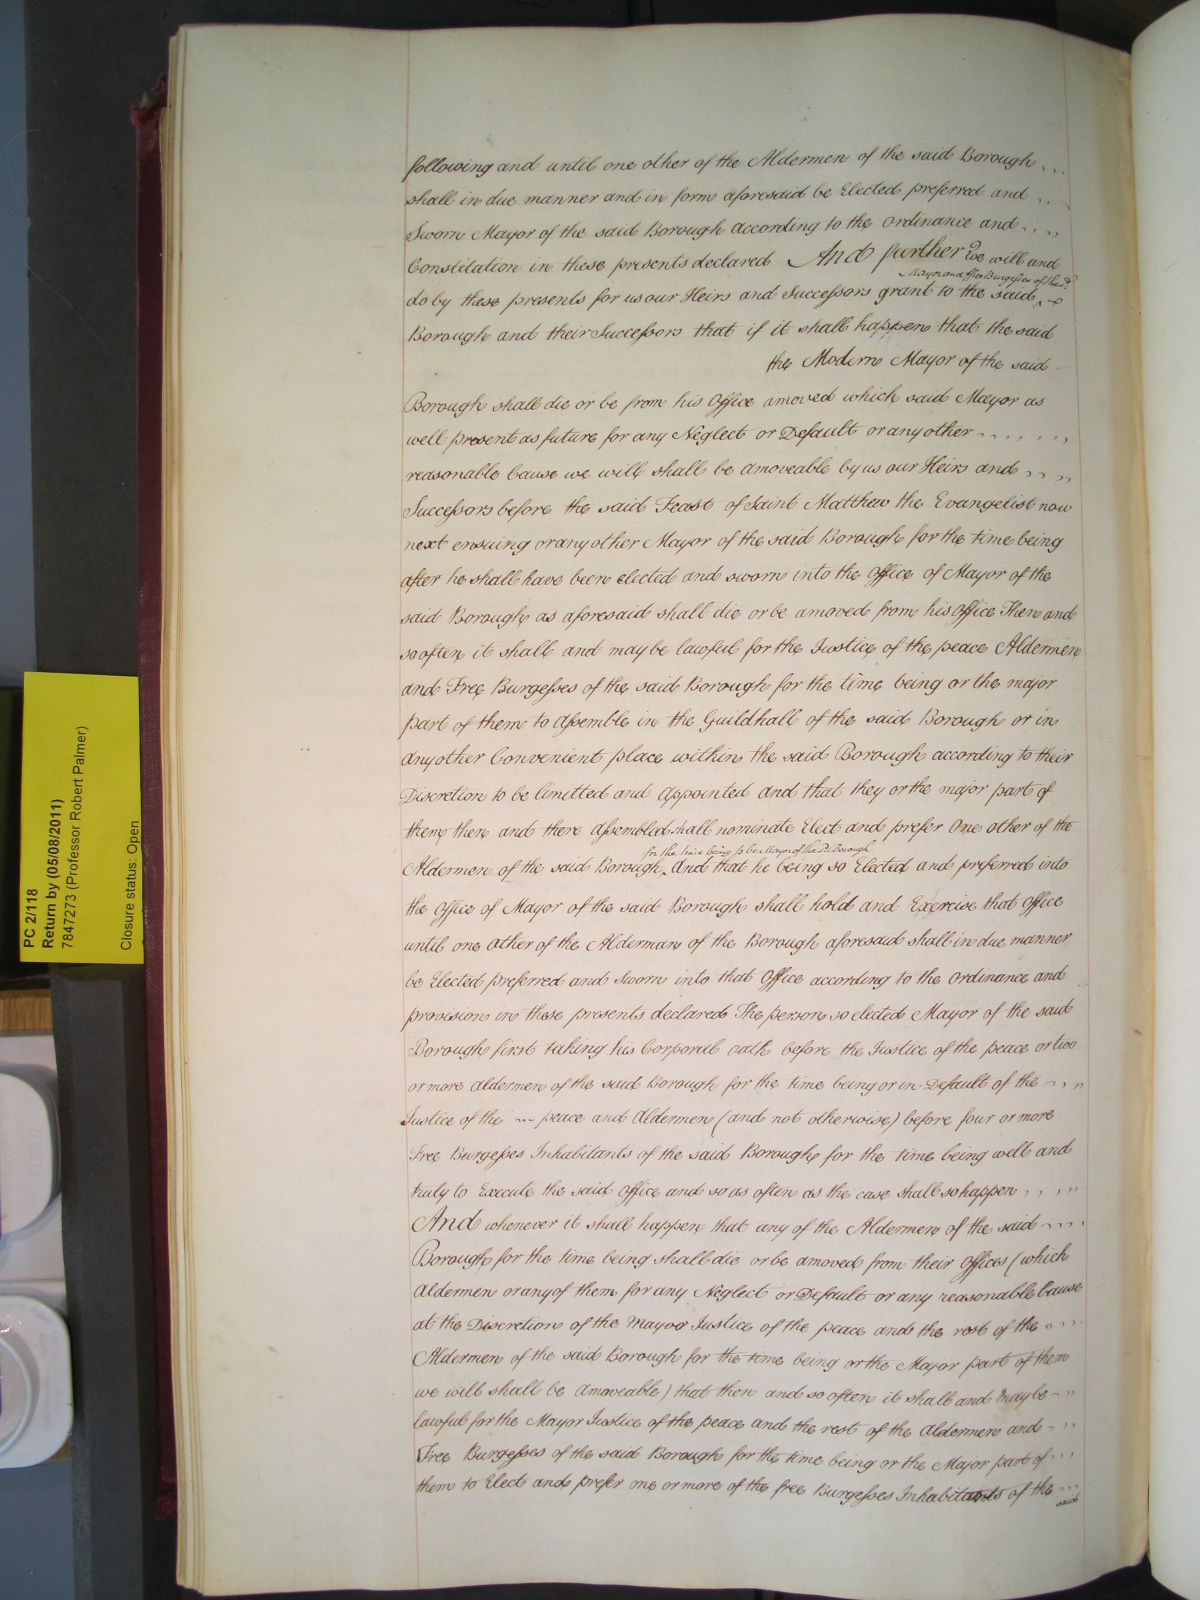 following and until one other of the Aldermen of the said Borough
shall in due manner and in form aforesaid be Elected preferred and
Sworn Mayor of the said Borough according to the ordinance and
Constitution in these presents declared And further We will and
Mayor and ffree Burgesses of the sd.
do by these presents for us our Heirs and Successors grant to the said
Borough and their Successors that if it shall happen that the said
the Modern Mayor of the said
Borough shall die or be from his Office amoved which said Mayor as
well present as future for any Neglect or Default or any other
reasonable Cause we will shall be amoveable by us our Heirs and
Successors before the said Feast of Saint Matthew the Evangelist now
next ensuing or any other Mayor of the said Borough for the time being
after he shall have been elected and sworn into the Office of Mayor of the
said Borough as aforesaid shall die or be amoved from his Office Then and
so often it shall and may be lawful for the Justice of the peace Aldermen
and Free Burgesses of the said Borough for the time being or the major
part of them to Assemble in the Guildhall of the said Borough or in
any other Convenient place within the said Borough according to their
Discretion to be limitted and Appointed and that they or the major part of
them then and there Assembled shall nominate Elect and prefer One other of the
for the time being to be Mayor of the sd. Borough
Aldermen of the said Borough And that he being so Elected and preferred into
the Office of Mayor of the said Borough shall hold and Exercise that Office
until one other of the Alderman of the Borough aforesaid shall in due manner
be Elected preferred and Sworn into that Office according to the Ordinance and
provision in these presents declared The person so elected Mayor of the said
Borough first taking his Corporal oath before the Justice of the peace or two
or more Aldermen of the said Borough for the time being or in Default of the
Justice of the --- peace and Aldermen (and not otherwise) before four or more
Free Burgesses Inhabitants of the said Borough for the time being well and
truly to Execute the said Office and so as often as the case shall so happen
And whenever it shall happen that any of the Aldermen of the said
Borough for the time being shall die or be amoved from their Offices (which
Aldermen or any of them for any Neglect or Default or any reasonable Cause
at the Discretion of the Mayor Justice of the peace and the rest of the
Aldermen of the said Borough for the time being or the Major part of them
we will shall be Amoveable) that then and so often it shall and may be
lawful for the Mayor Justice of the peace and the rest of the Aldermen and
Free Burgesses of the said Borough for the time being or the Major part of
them to Elect and prefer one or more of the free Burgesses Inhabitants of the
said
PC 2/118
Return by (05/08/2011)
7847273 (Professor Robert Palmer)
Closure status: Open